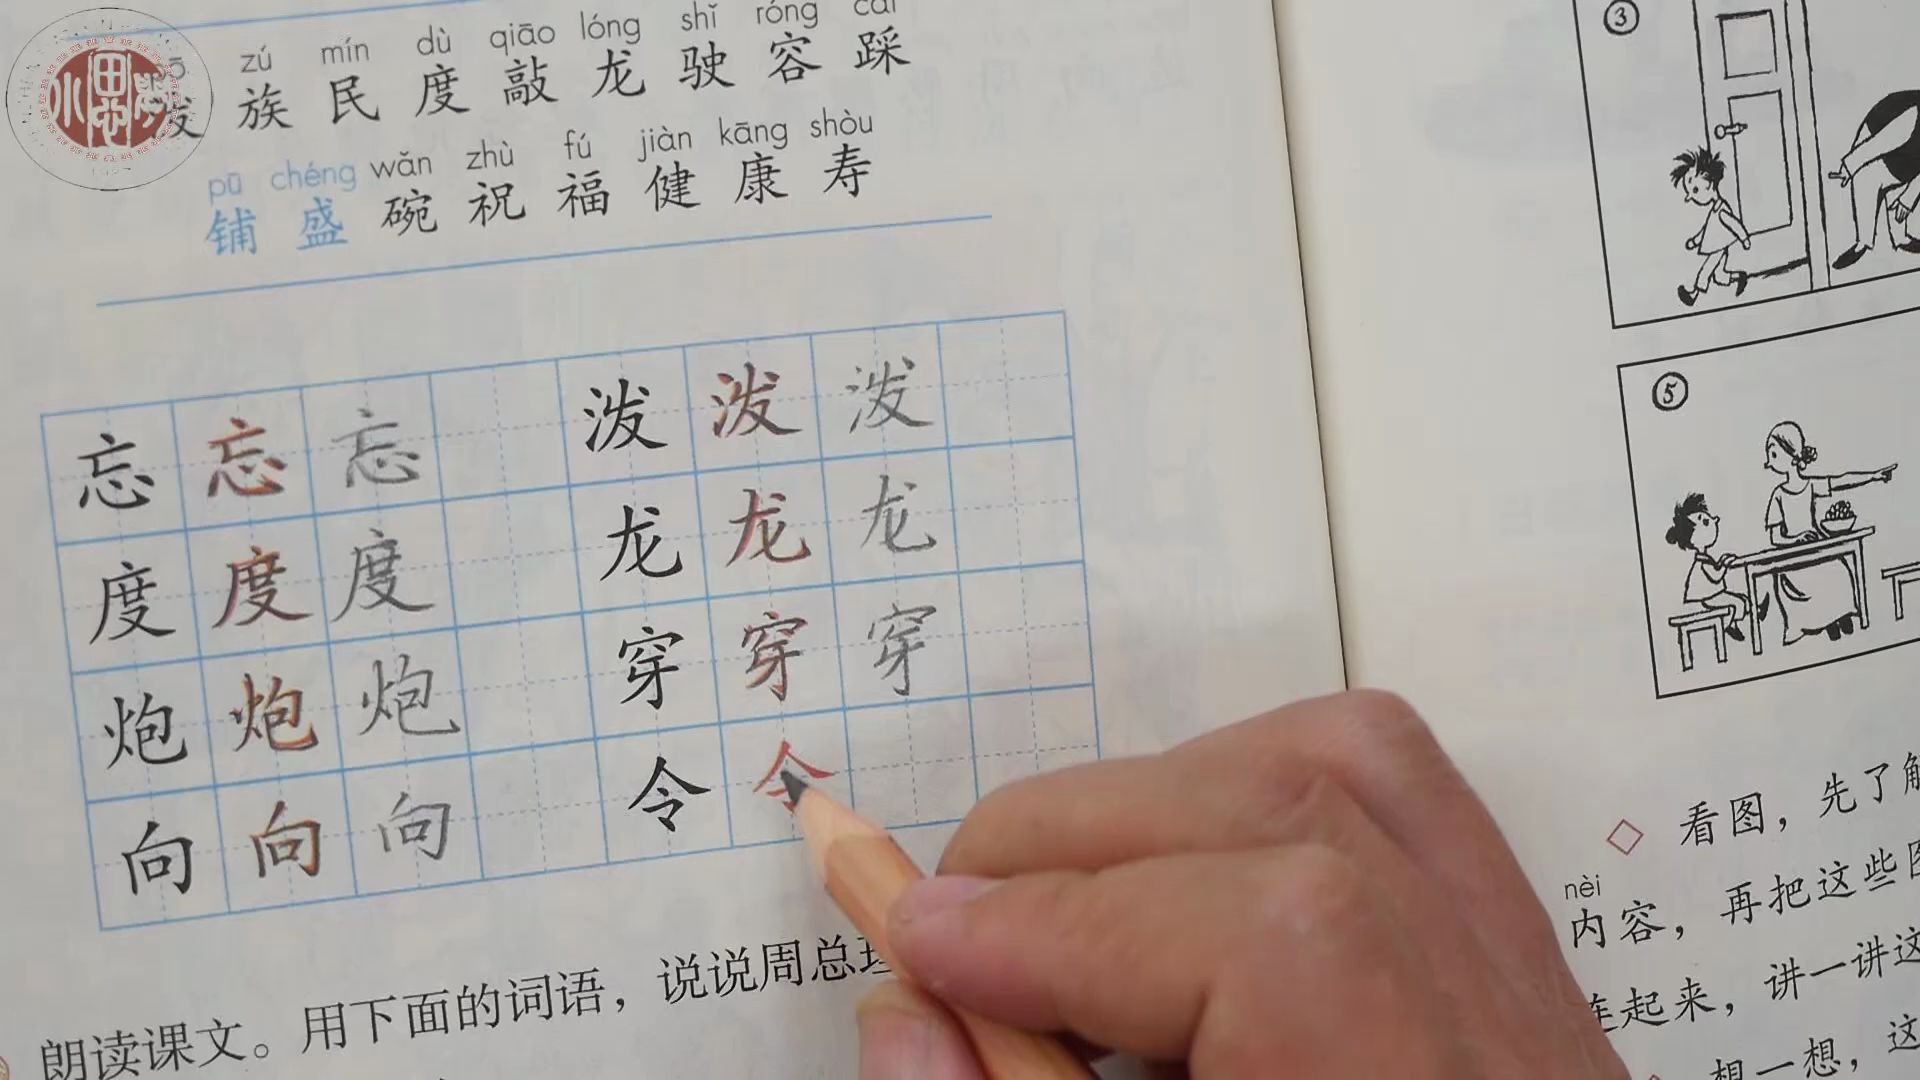 zú mín dù qiāo lóng shǐ róng cǎi
泼 族 民 度 敲 龙 驶 容 踩
pū chéng wǎn zhù fú jiàn kāng shòu
铺 盛 碗 祝 福 健 康 寿
忘 忘 忘 泼 泼 泼
度 度 度 龙 龙 龙
炮 炮 炮 穿 穿 穿
向 向 向 令 令
朗读课文。用下面的词语，说说周总理
③
⑤
看图，先了解
nèi
内容，再把这些图
连起来，讲一讲这
想一想，这